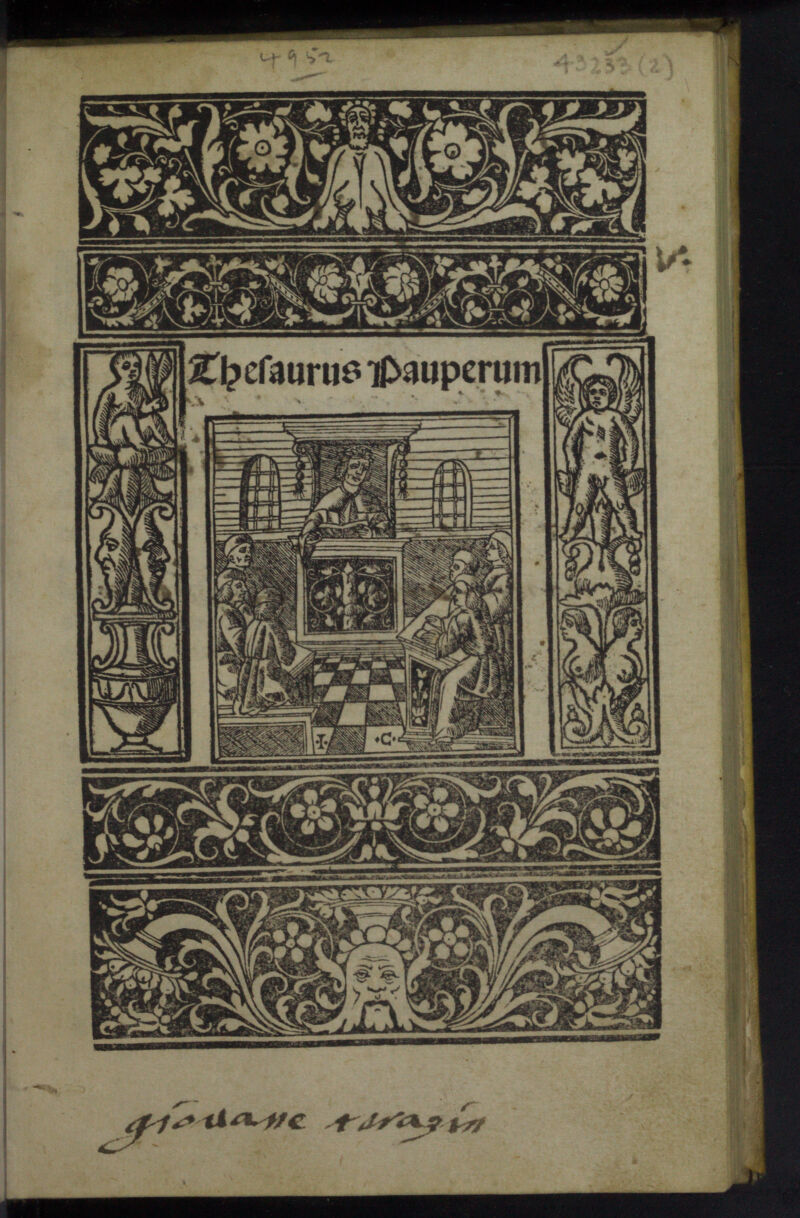 4952
43233(2)
Thesaurus Pauperum
I. .C.
giovane